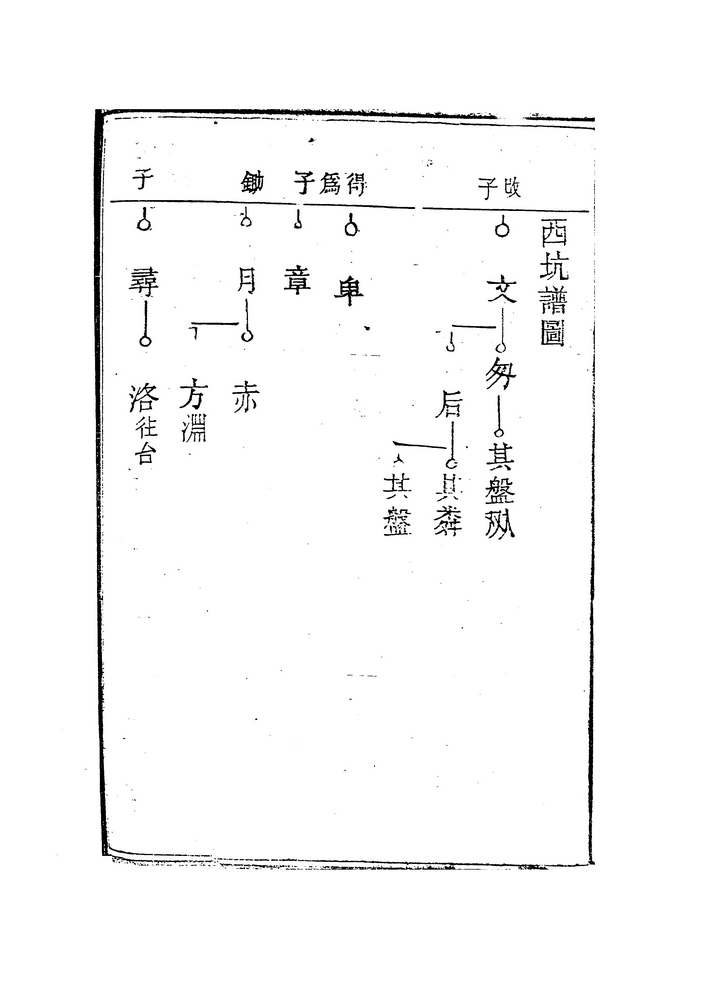 西坑譜圖
攺子
文
匆
其盤
后
其
其盤
得爲子
阜
章
鋤
月
赤
方淵
子
尋
洛往台